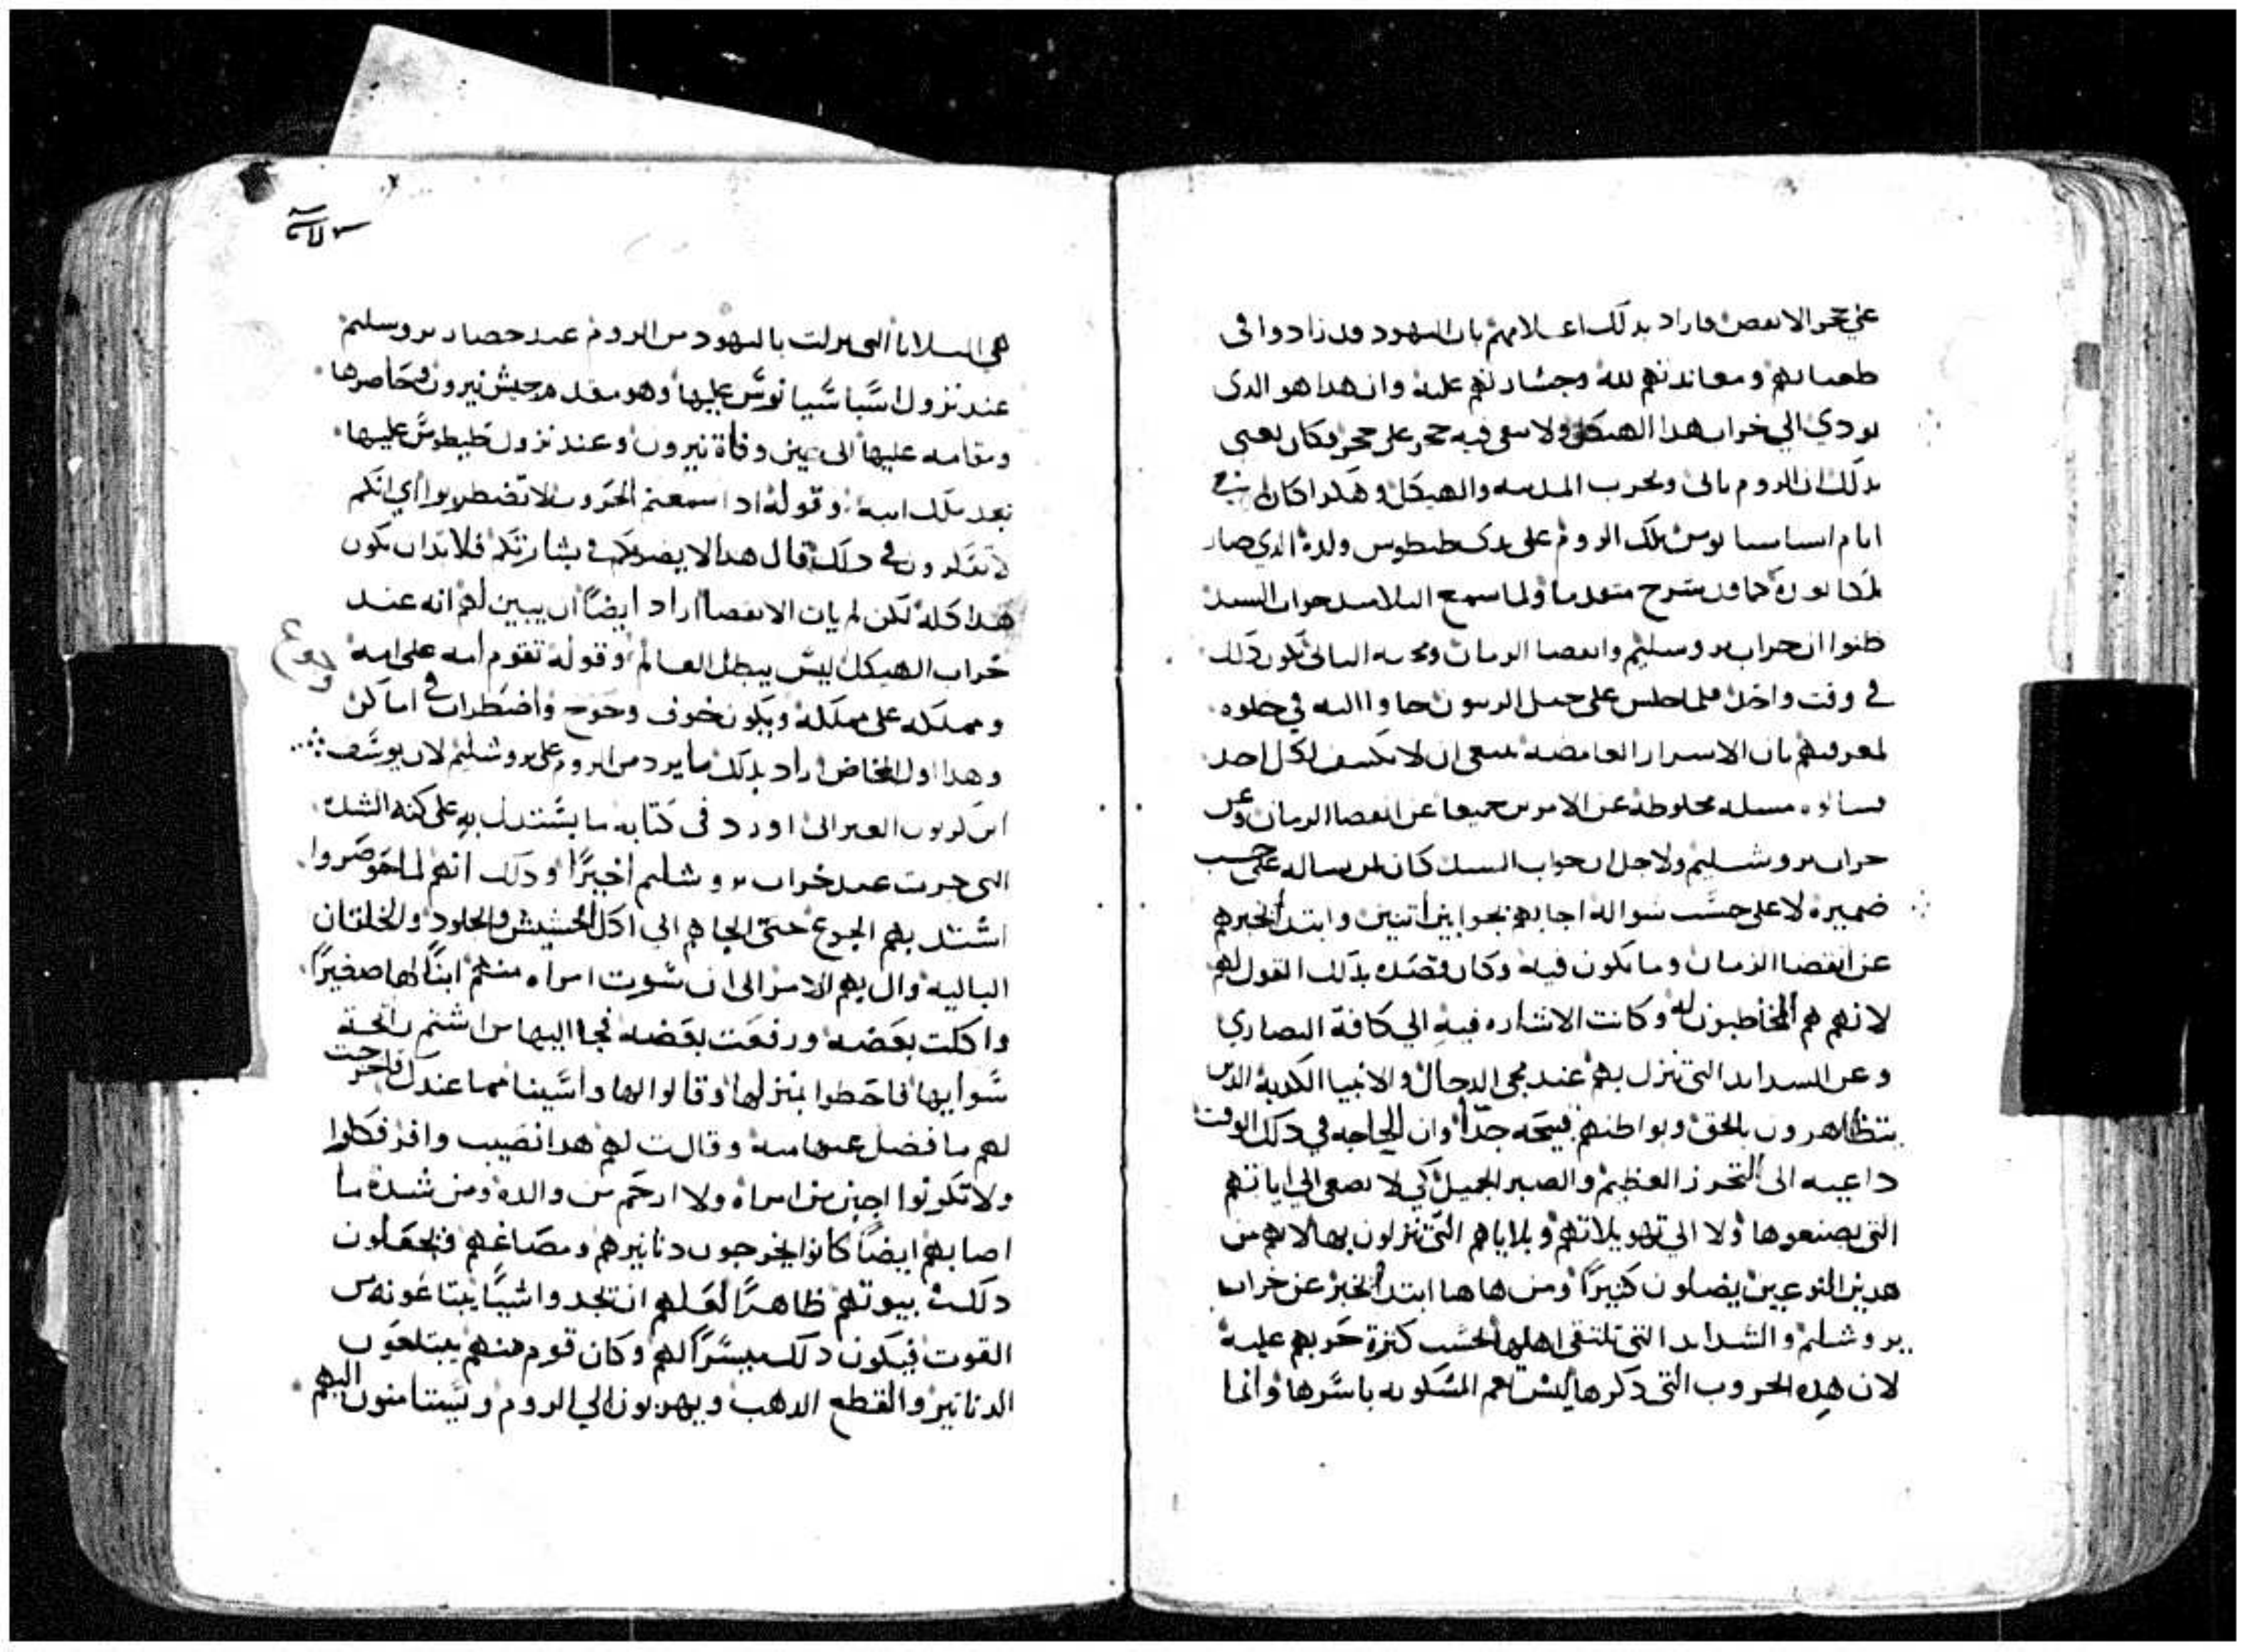 على حجر الا نقض فاراد بدلك اعلامهم بان اليهود قد زادوا في
طغيانهم ومعاندتهم لله وجسارتهم عليه وان هدا هو الدى
يودي الي خراب هدا الهيكل ولا يبقى فيه حجر على حجر فكان يعنى
بدلك ان الروم ياتى ويخرب المدينه والهيكل وهكدا كان
ايام اسباسيانوس ملك الروم على يدى طيطوس ولده الدي صار
ملكا بعده كما قد شرح متقدما ولما سمع التلاميد جواب السيد
ظنوا ان خراب يروسليم وانقضا الزمان ومجيه التانى يكون دلك
في وقت واحد فلما جلس على جبل الزيتون جاوا اليه في خلوه
لمعرفتهم بان الاسرار الغامضه ينبغى ان لا تكشف لكل احد
فسالوه مسله مخلوطه عن الامرين جميعا عن انقضا الزمان وعن
خراب يروشليم ولاجل ان جواب السيد كان لمن يساله على حسب
ضميره لا على حسب سواله اجابهم بجوابين اتنين وابتدا يخبرهم
عن انقضا الزمان وما يكون فيه وكان قصده بدلك القول لهم
لانهم هم المخاطبون له وكانت الاشاره فيه الي كافة النصاري
وعن الشدايد التى تنزل بهم عند مجى الدجال والانبيا الكدبه الدين
يتظاهرون بالحق وبواطنهم قبيحه جدا وان الحاجه في دلك الوقت
داعيه الى التحرز العظيم والصبر الجميل كي لا يصغى الي اياتهم
التى يصنعوها ولا الي تهويلاتهم وبلاياهم التى ينزلون بها لانهم من
هدين النوعين يضلون كتيرا ومن هاهنا ابتدا يخبر عن خراب
يروشليم والشدايد التى تلتقى اهلها بحسب كترة حربهم عليه
لان هده الحروب التى دكرها ليست تعم المسكونه باسرها وانما
هى البلايا التى نزلت باليهود من الروم عند حصار يروسليم
عند نزول اسباسيانوس عليها وهو مقدم جيش نيرون وحاصرها
ومقامه عليها الى حين وفاة نيرون وعند نزول طيطوس عليها
بعد ملك ابيه وقوله ادا سمعتم الحروب لا تضطربوا اي انكم
لا تفكرون في دلك قال هدا لا يضركم في بشارتكم فلا بد ان يكون
هدا كله لكن لم يات الانقضا اراد ايضا ان يبين لهم انه عند
خراب الهيكل ليس يبطل العالم وقوله تقوم امه على امه
ومملكه على مملكه ويكون خوف وجوع واضطراب في اماكن
وهدا اول المخاض اراد بدلك ما يرد من الروم على يروشليم لان يوسف
ابن كريون العبرانى اورد فى كتابه ما يستدل به على كنه الشده
التى جرت عند خراب يروشليم اخيرا ودلك انهم لما حوصروا
اشتد بهم الجوع حتى الجاهم الى اكل الحشيش والجلود والخلقان
الباليه وال بهم الامر الى ان شوت امراه منهم ابنا لها صغيرا
واكلت بعضه ورفعت بعضه فجا اليها من اشتم رايحة
شوايها فاحطوا بمنزلها وقالوا لها واسينا مما عندك فاخرجت
لهم ما فضل عنها منه وقالت لهم هدا نصيب وافر فكلوا
ولا تكونوا اجبن من امراه ولا ارحم من والده ومن شدة ما
اصابهم ايضا كانوا يخرجون دنانيرهم ومصاغهم فيجعلون
دلك بيوتهم ظاهرا لعلهم ان يجدوا شيا يبتاعونه من
القوت فيكون دلك ميسرا لهم وكان قوم منهم يبتلعون
الدنانير والقطع الدهب ويهربون الي الروم ويستامنون اليهم